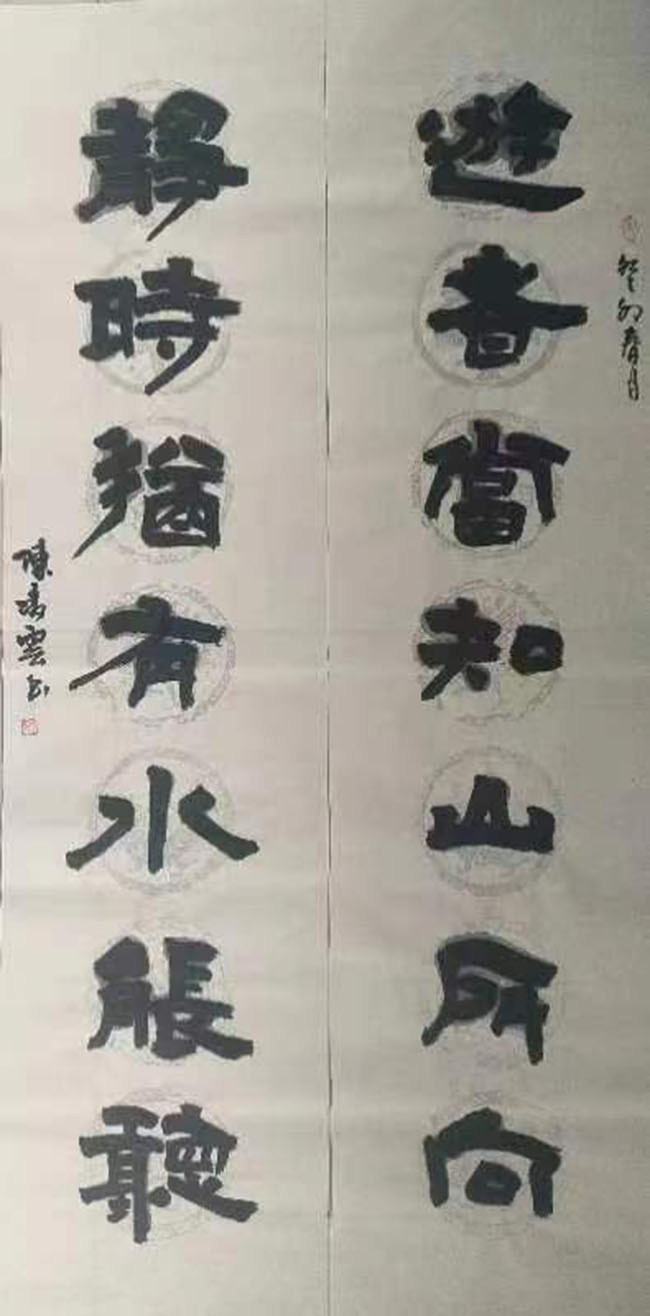 癸卯春月
遊者當知山所向
靜時猶有水能聽
陳雲书